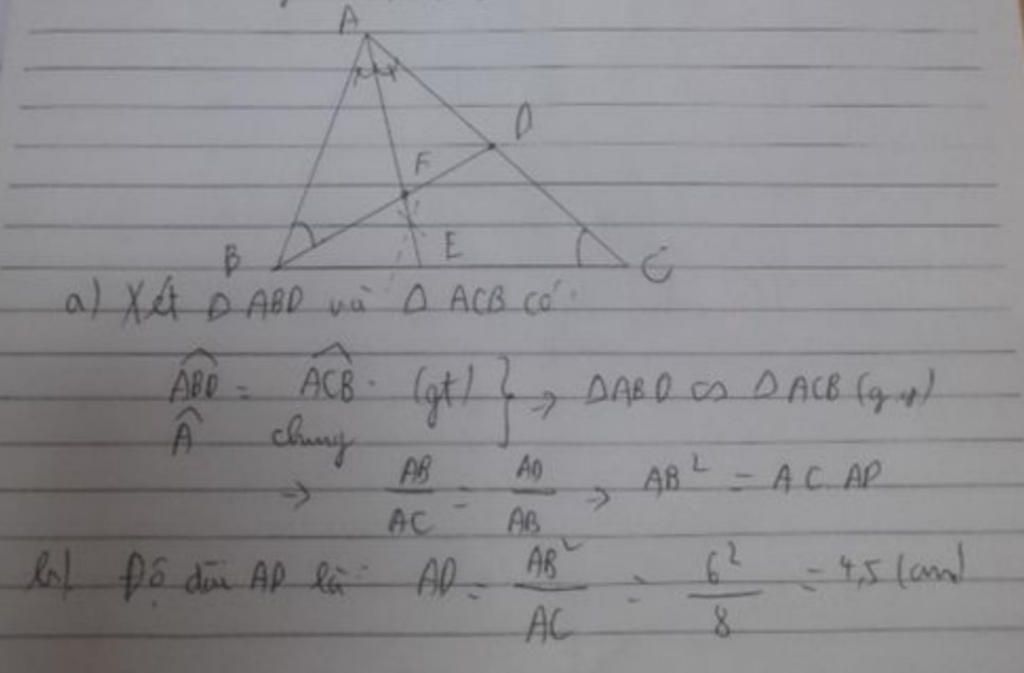 A
D
F
B E C
a) Xét Δ ABD và Δ ACB có:
ABD = ACB (gt) } → ΔABD ∽ ΔACB (g.g)
A chung
→ AB/AC = AD/AB → AB² = AC.AD
b) Độ dài AD là: AD = AB²/AC = 6²/8 = 4,5 (cm)